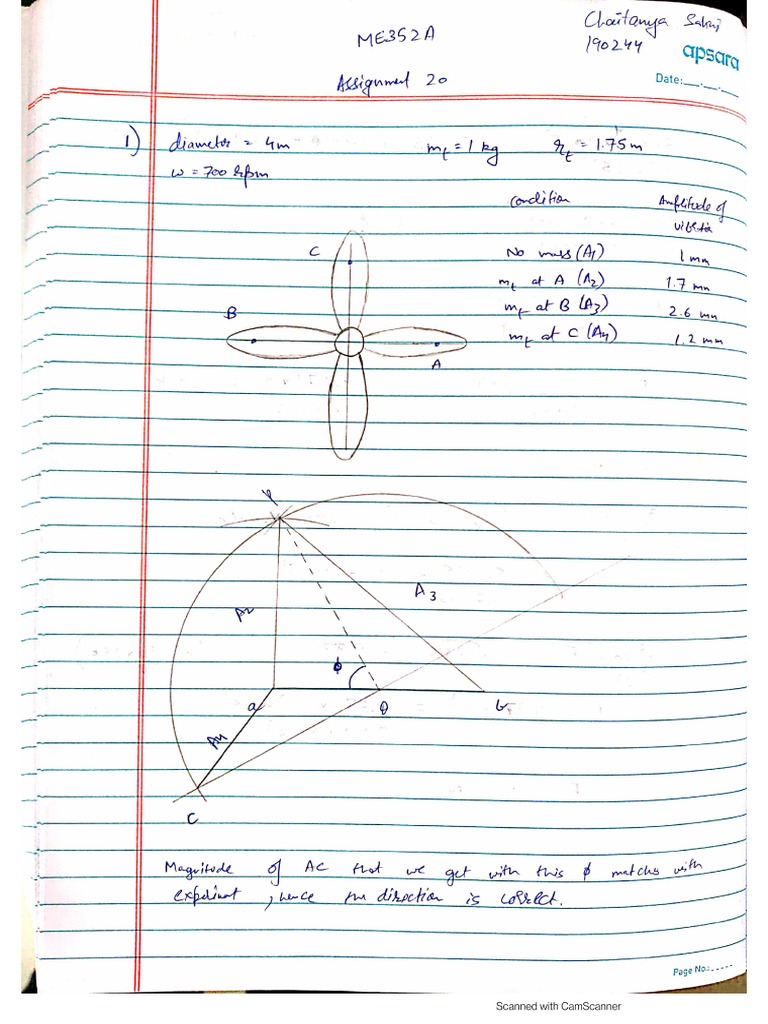 ME352A
Chaitanya Sahuj
190244
apsara
Date:__.__.__
Assignment 20
1) diameter = 4m m_t = 1 kg r_t = 1.75 m
ω = 700 rpm
condition Amplitude of vibratn
No mass (A1) 1 mm
m_t at A (A2) 1.7 mm
m_t at B (A3) 2.6 mm
m_t at C (A4) 1.2 mm
C
B
A
A3
A2
ϕ
a O b
A4
C
Magnitude of AC that we get with this ϕ matches with
expeimnt, hence the direction is correct.
Page No.:-----
Scanned with CamScanner